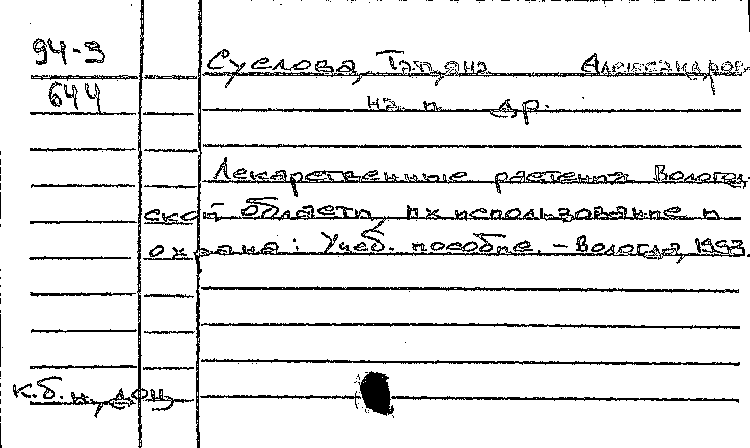 94-3
644
Суслова, Татьяна Александров-
на и др.
Лекарственные растения Вологод-
ской области, их использование и
охрана: Учеб. пособие. - Вологда, 1993.
к.б.н., доц